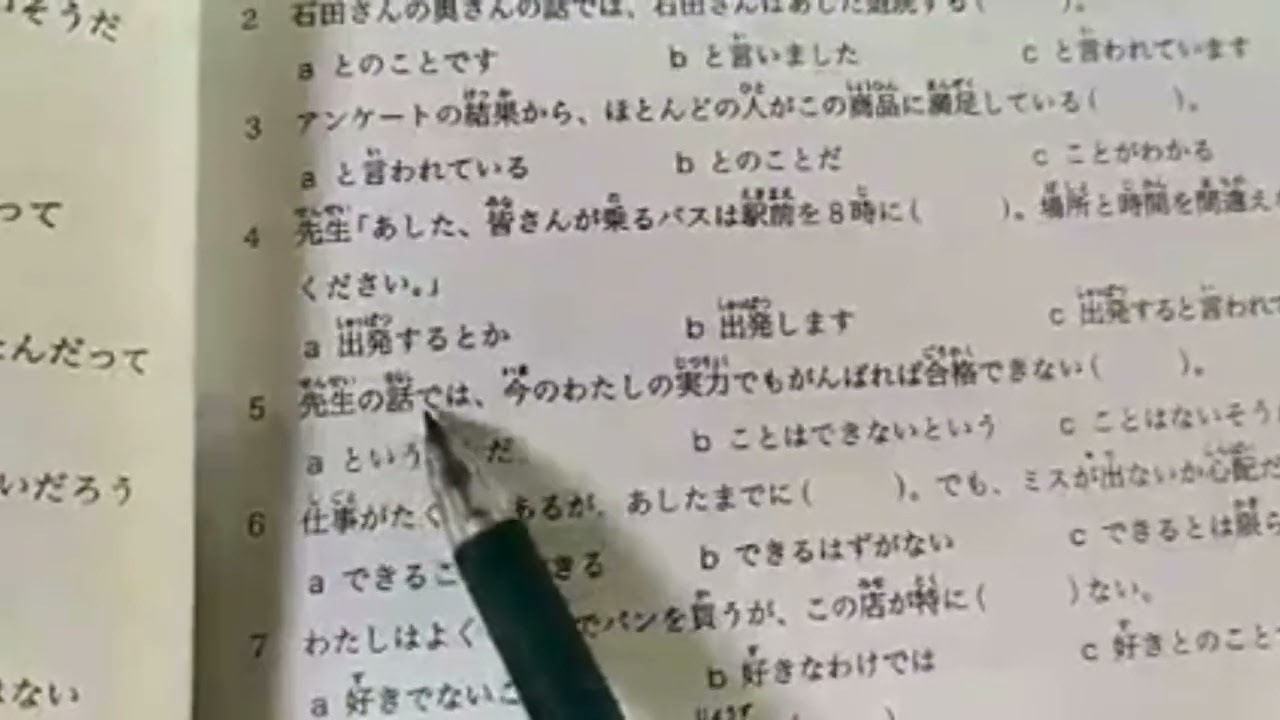 そうだ
って
んだって
いだろう
ない
2 石田さんの奥さんの話では、石田さんはあした退院する( )。
a とのことです b と言いました c と言われています
3 アンケートの結果から、ほとんどの人がこの商品に満足している( )。
a と言われている b とのことだ c ことがわかる
4 先生「あした、皆さんが乗るバスは駅前を8時に( )。場所と時間を間違え
ください。」
a 出発するとか b 出発します c 出発すると言われて
5 先生の話では、今のわたしの実力でもがんばれば合格できない( )。
a という だ b ことはできないという c ことはないそう
6 仕事がたく あるが、あしたまでに( )。でも、ミスが出ないか心配だ
a できるこ きる b できるはずがない c できるとは限ら
7 わたしはよく でパンを買うが、この店が特に( )ない。
a 好きでないこ b 好きなわけでは c 好きとのこと